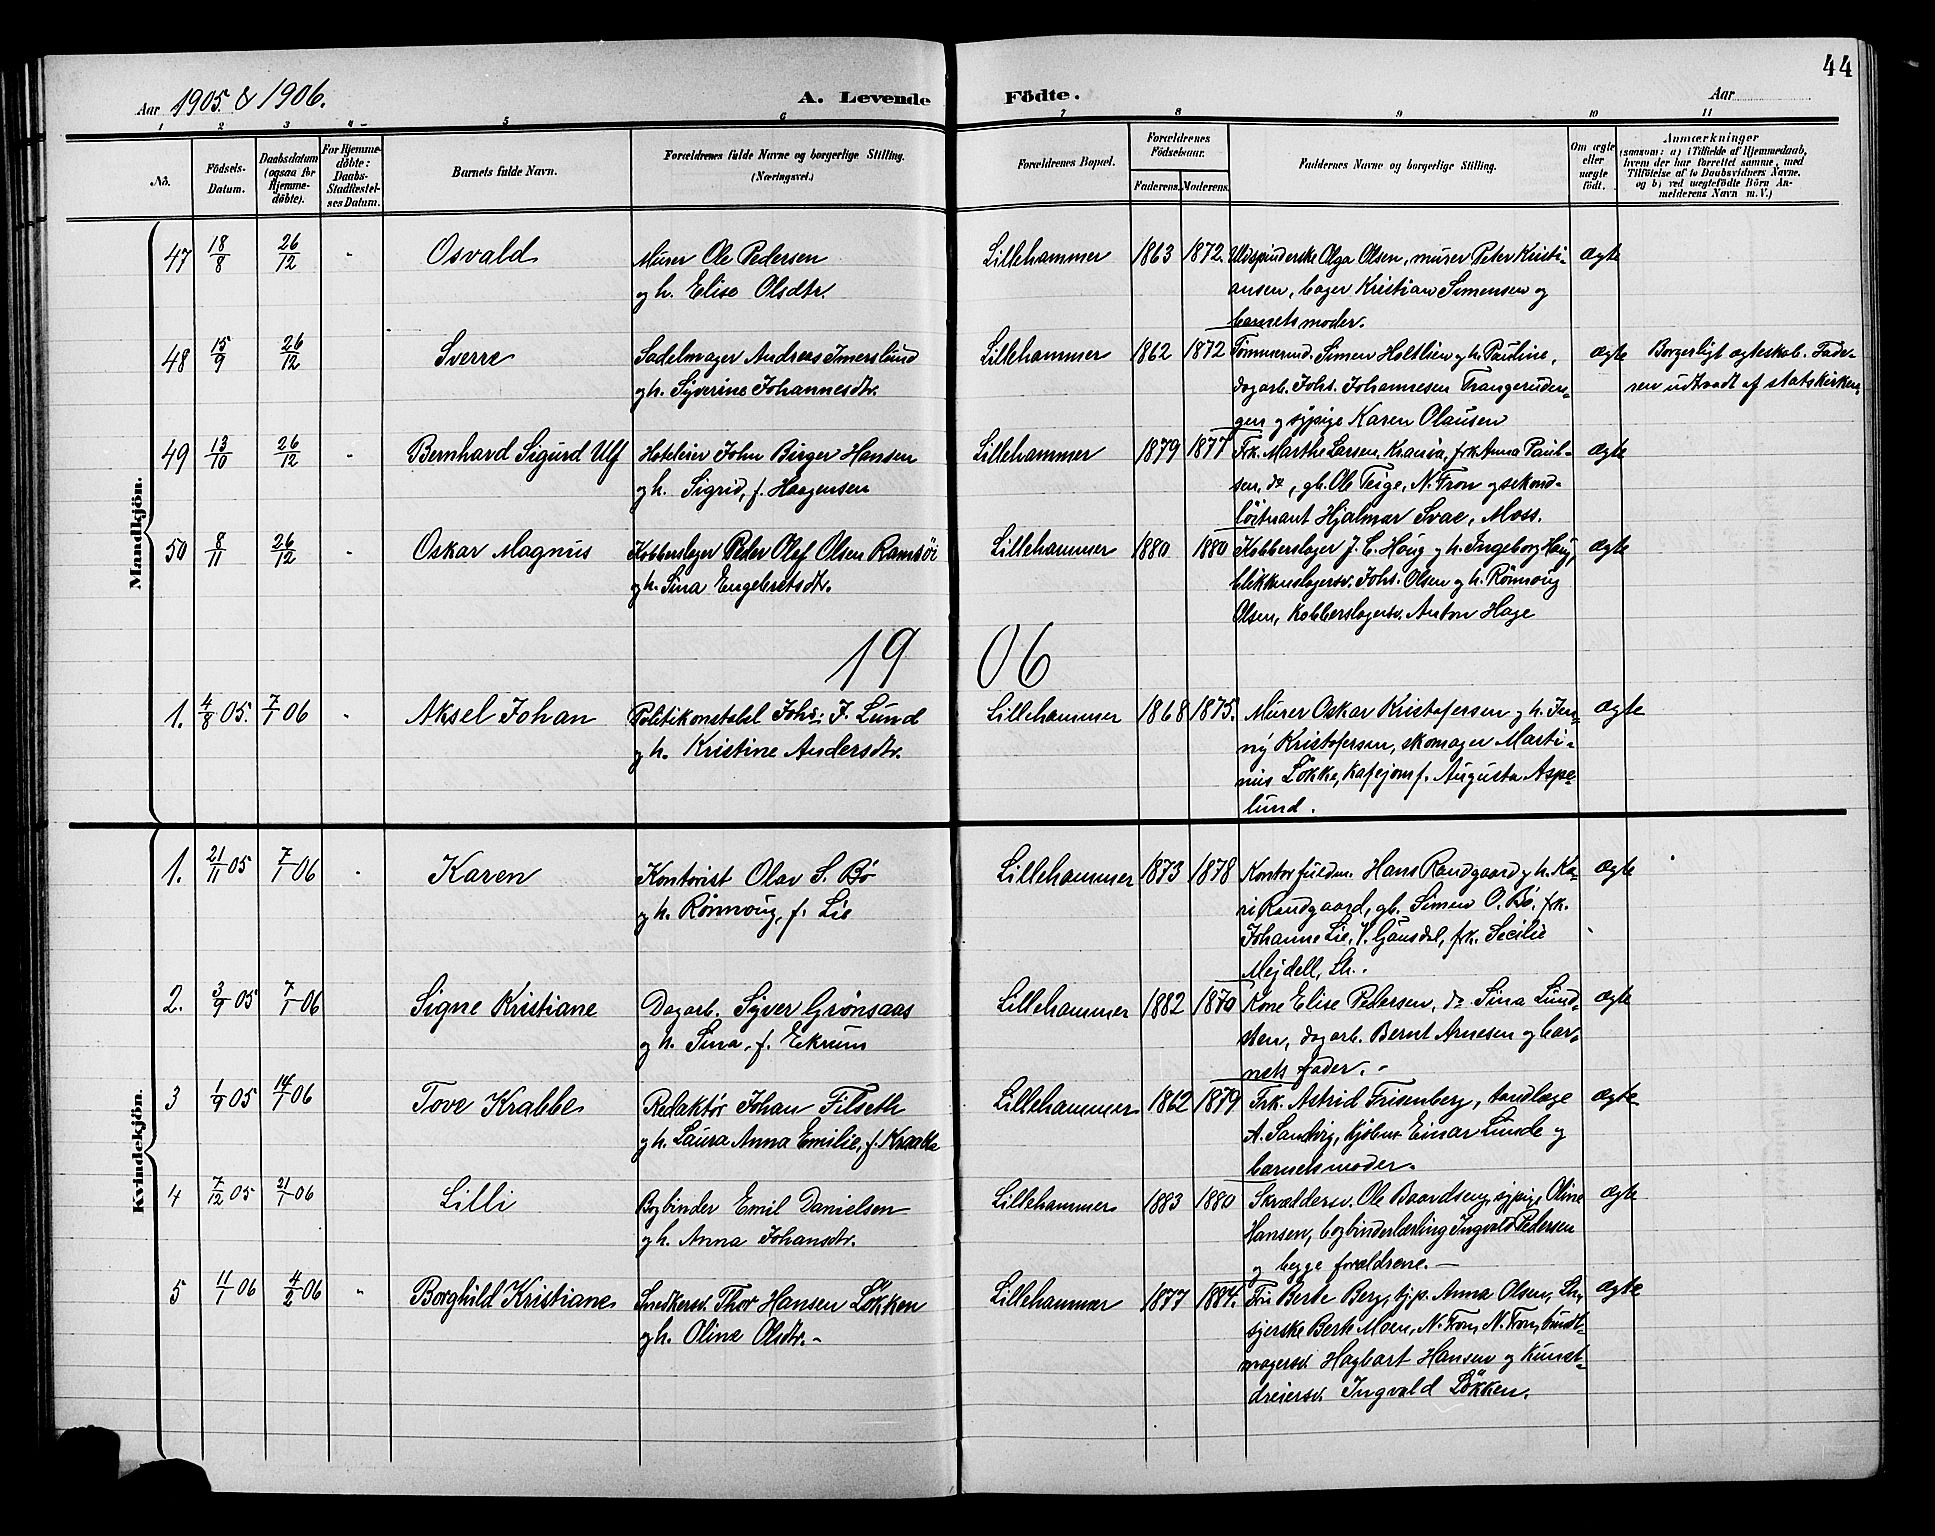 44
Aar 1905 & 1906.
A. Levende Födte.
Aar
1 2 3 4 5 6 7 8 9 10 11
No.
Födsels-Datum.
Daabsdatum (ogsaa for Hjemme-döbte).
For Hjemme-döbte: Daabs-Stadfæstel-ses Datum.
Barnets fulde Navn.
Forældrenes fulde Navne og borgerlige Stilling. (Næringsvei.)
Forældrenes Bopæl.
Forældrenes Födselsaar.
Faderens. Moderens.
Faddernes Navne og borgerlige Stilling.
Om ægte eller uægte født.
Anmærkninger
(saasom: a) i Tilfælde af Hjemmedaab, hvem der har forrettet samme, med Tilföielse af to Daabsvidners Navne, og b) ved uægtefödte Börn Anmelderens Navn m. V.)
Mandkjön.
47 18/8 26/12 " Osvald
Murer Ole Pedersen
og h. Elise Olsdtr.
Lillehammer 1863 1872.
Uldspinderske Olga Olsen, murer Peter Kristi-
ansen, bager Kristian Simensen og
barnets moder.
Ægte
48 15/9 26/12 Sverre
Sadelmager Andreas Imerslund
og h. Syverine Johannesdtr.
Lillehammer 1862 1872
Tømmermd. Simen Holtlien og h. Pauline,
dagarb. Johs. Johannesen Trangeruden-
gen og sypige Karen Olausen
Ægte
Borgerligt ægteskab. Fade-
ren udtraadt af statskirken.
49 13/10 26/12 " Bernhard Sigurd Ulf
Hoteleier John Birger Hansen
og h. Sigrid, f. Haagensen
Lillehammer 1879 1877
Frk. Marthe Larsen, Krania, frk. Anna Paul-
sen, do, gb. Ole Teige, N. Fron og sekond-
löitnant Hjalmar Svae, Moss.
Ægte
50 8/11 26/12 " Oskar Magnus
Kobberslager Peder Olaf Olsen Ramsöi
og h. Sina Engebretsdtr.
Lillehammer 1880 1880
Kobberslager J. C. Houg og h. Ingeborg Houg,
blikkenslagersv. Johs. Olsen og h. Rönnoug
Olsen, Kobberslagersv. Anton Hage
Ægte
1906
1. 4/8 05. 7/1 06 " Aksel Johan
Politikonstabel Johs. J. Lund
og h. Kristine Andersdtr.
Lillehammer 1868 1875.
Murer Oskar Kristofersen og h. Jen-
ny Kristofersen, skomager Marti-
nius Lökke, kafejomf. Augusta Aspe-
lund.
Ægte
Kvindekjön.
1. 21/11 05 7/1 06 " Karen
Kontorist Olav S. Bø
og h. Rönnoug, f. Lie
Lillehammer 1873 1878
Kontorfuldm. Hans Randgaard og h. Ka-
ri Randgaard, gb. Simen O. Bø, frk.
Johanne Lie, V. Gausdal, frk. Secilie
Mejdell, Lh.
Ægte
2. 3/9 05 7/1 06 Signe Kristiane
Dagarb. Syver Grønsaas
og h. Sina, f. Ekrum
Lillehammer 1882 1870
Kone Elise Pedersen, do Sina Lund-
sten, dagarb. Bernt Arnesen og bar-
nets fader.
Ægte
3 1/9 05 14/1 06 Tove Krabbe
Redaktør Johan Filseth
og h. Laura Anna Emilie, f. Kraabbe
Lillehammer 1862 1879
Frk. Astrid Frisenberg, tandlæge
A. Sandvig, kjöbm. Einar Lunde og
barnets moder.
Ægte
4 7/12 05 21/1 06 Lilli
Bogbinder Emil Danielsen
og h. Anna Johansdtr.
Lillehammer 1883 1880
Skræddersv. Ole Baardseng, sypige Oline
Hansen, bogbinderlærling Ingvald Pedersen
og begge forældrene.
Ægte
5 11/1 06 4/2 06 " Borghild Kristiane
Snedkersv. Thor Hansen Lökken
og h. Oline Olsdtr.
Lillehammer 1877 1884.
Fru Berte Berg, tj.p. Anna Olsen, Lh.,
syerske Berte Moen, N. Fron, N. Fron, bundt-
magersv. Hagbart Hansen og kunst-
dreiersv. Ingvald Lökken.
Ægte